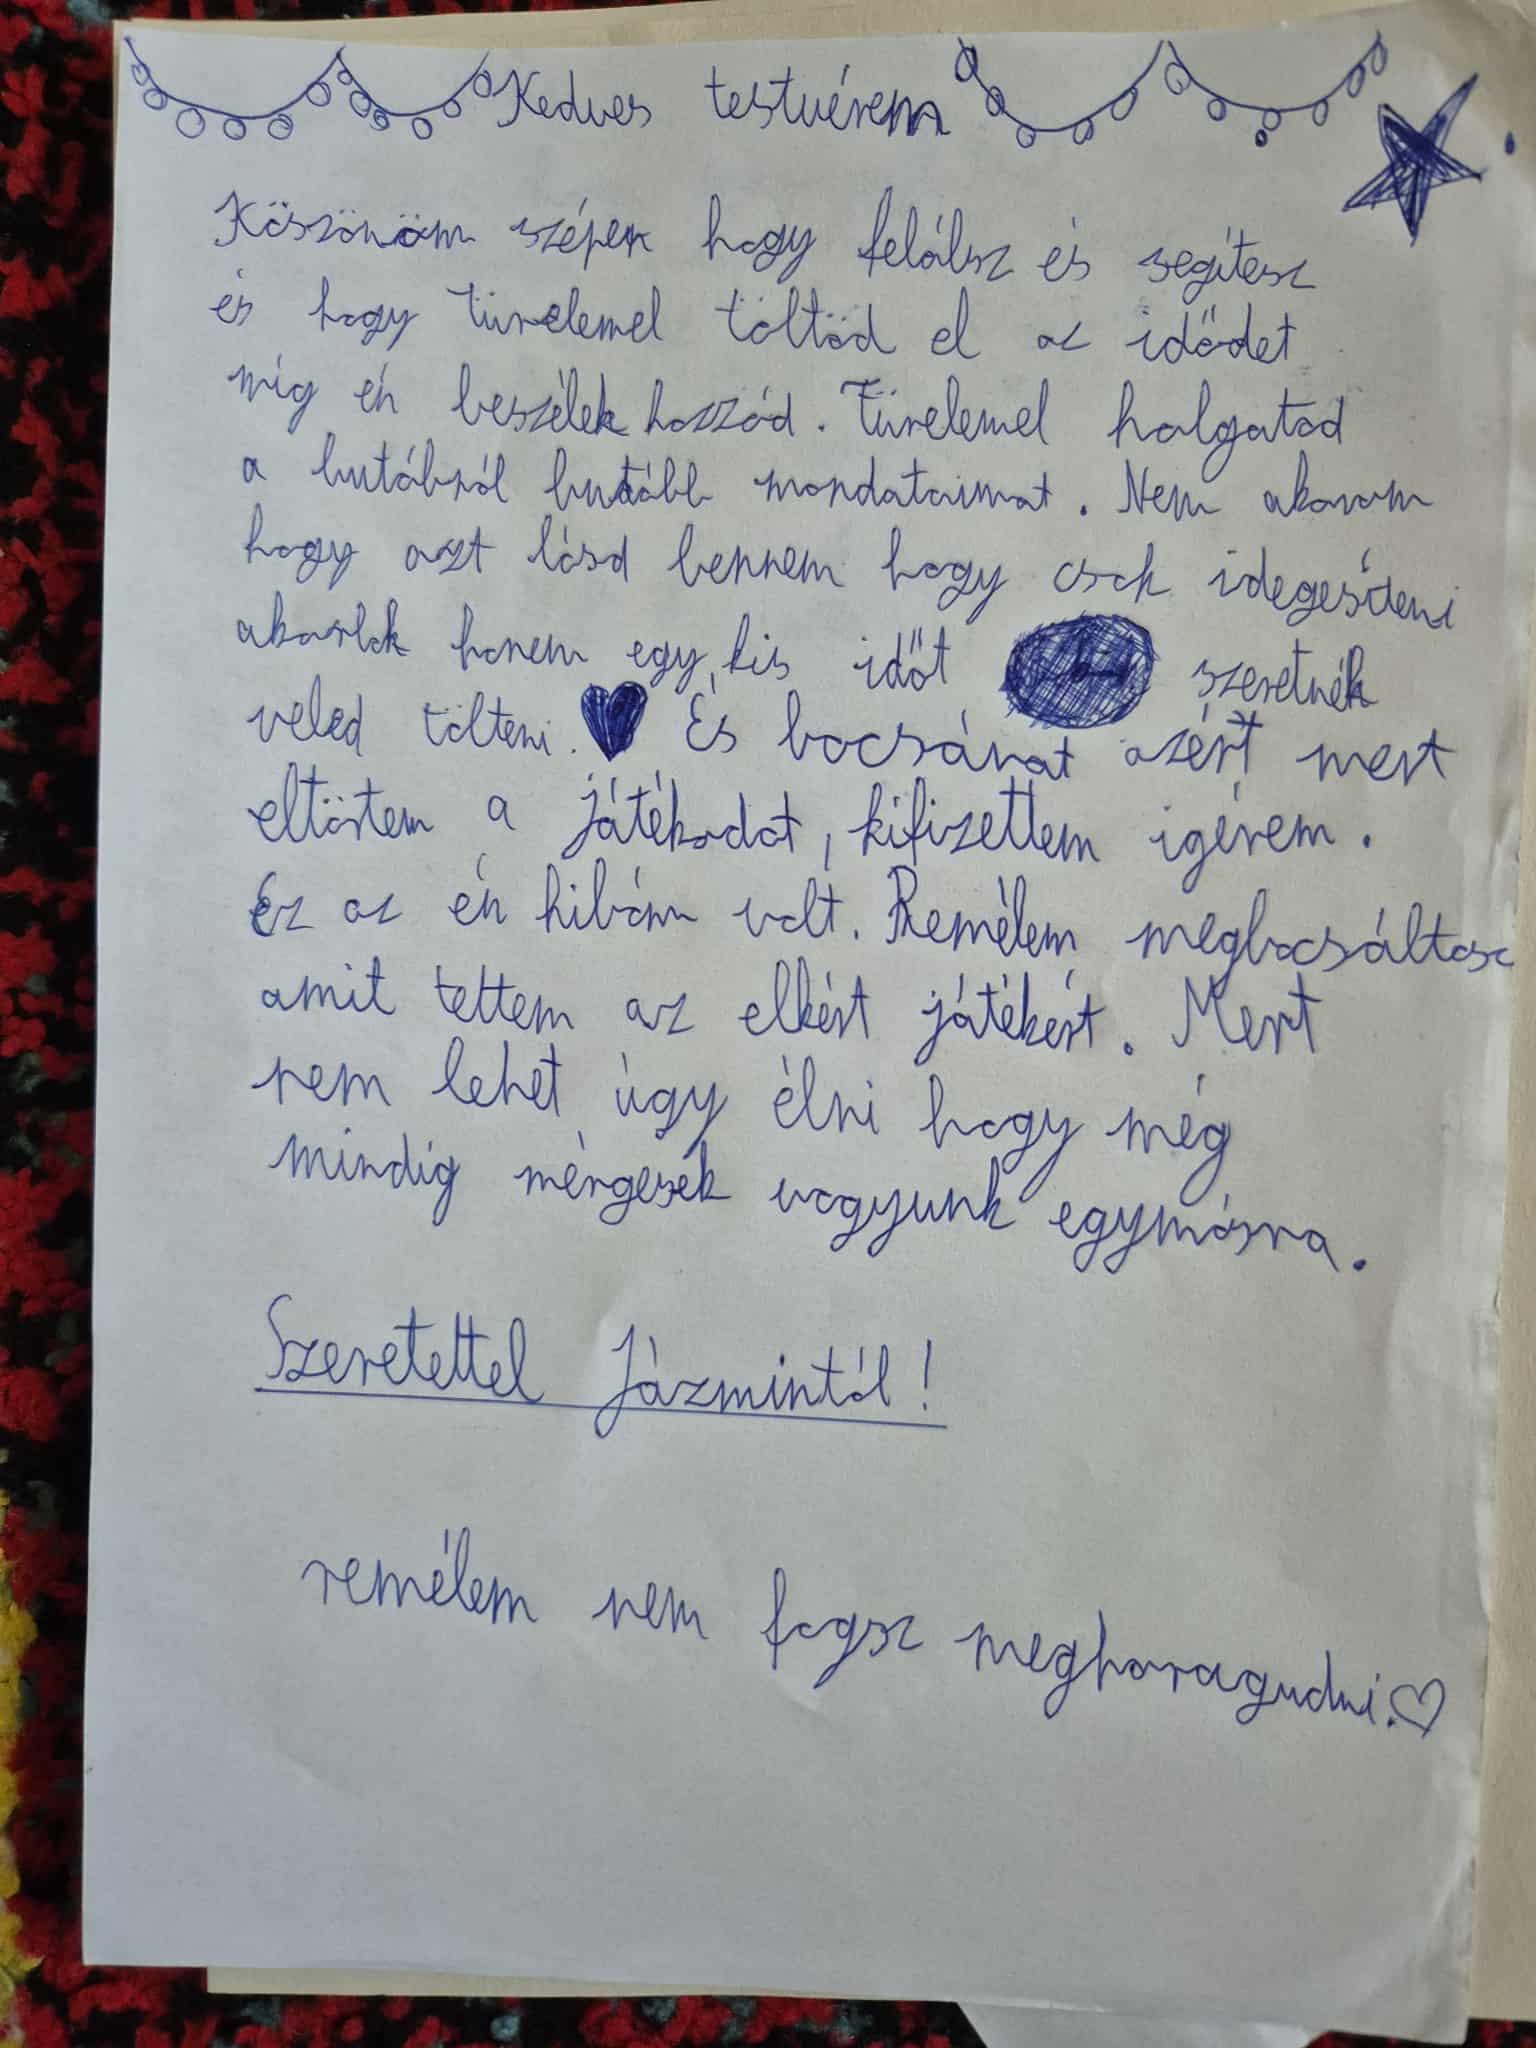 Kedves testvérem
Köszönöm szépen hogy felálsz és segítesz
és hogy türelemel töltöd el az idődet
míg én beszélek hozzád. Türelemel halgatod
a butábról butább mondataimat. Nem akarom
hogy azt lásd bennem hogy csak idegesíteni
akarlak hanem egy kis időt szeretnék
veled tölteni. És bocsánat azért mert
eltörtem a játékodat, kifizettem igérem.
Ez az én hibám volt. Remélem megbocsáltasz
amit tettem az elkért játékért. Mert
nem lehet úgy élni hogy még
mindig mérgesek vagyunk egymásra.
Szeretettel Jázmintól!
remélem nem fogsz megharagudni.